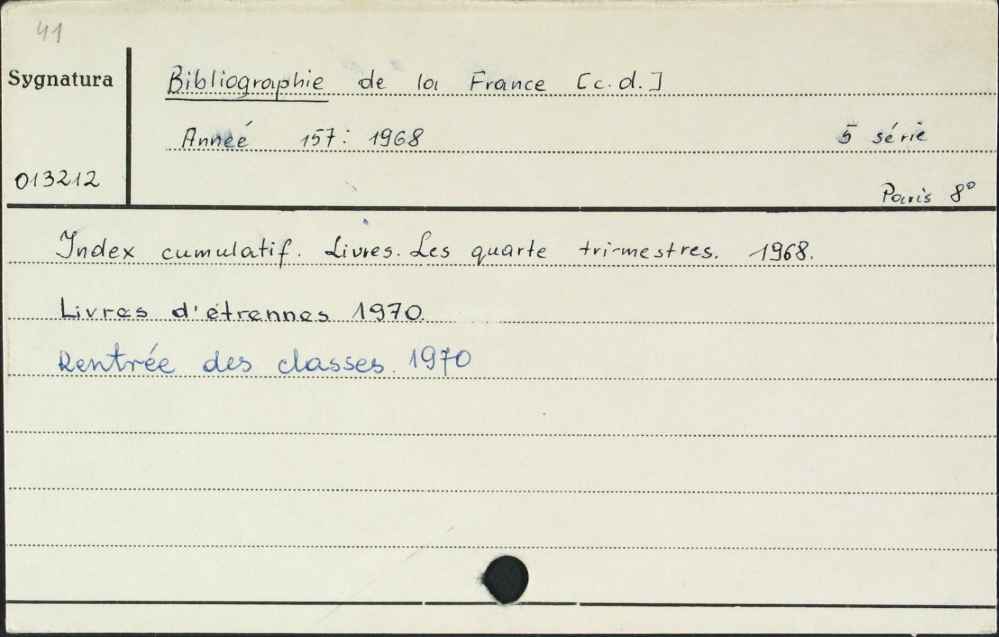 41
Sygnatura
Bibliographie de la France [c.d.]
Anneé 157: 1968 5 série
013212
Paris 8°
Index cumulatif. Livres. Les quarte trimestres. 1968.
Livres d'étrennes 1970
Rentrée des classes. 1970